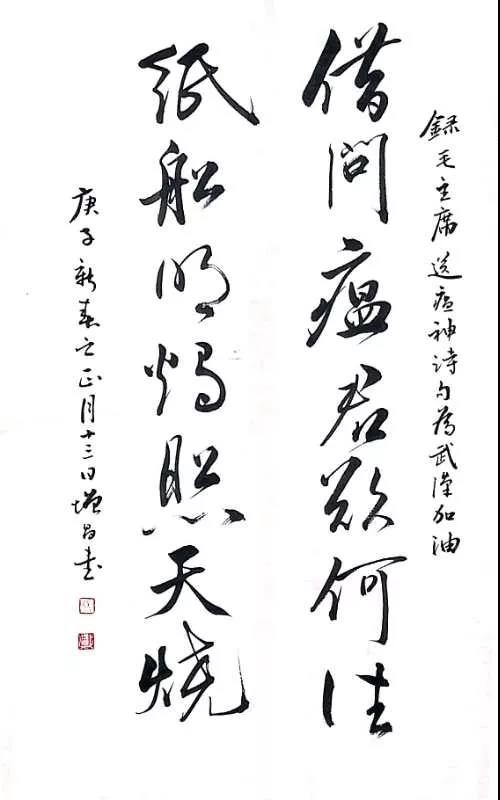 録毛主席送瘟神诗句為武漢加油
借问瘟君欲何往
纸船明烛照天烧
庚子新春之正月十三日增昌书